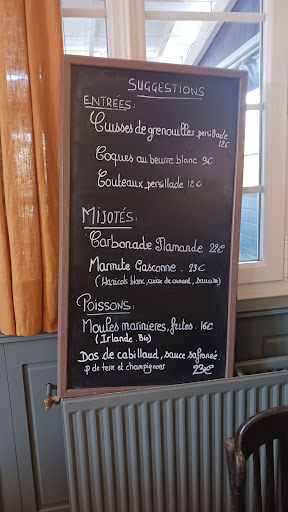 SUGGESTIONS
ENTRÉES:
Cuisses de grenouilles, persillade
12€
Coques au beurre blanc 9€
Couteaux, persillade 12€
MIJOTÉS:
Carbonade Flamande 22€
Marmite Gasconne. 23€
(Haricots blanc, cuisse de canard, saucisse)
POISSONS:
Moules marinieres, frites. 16€
(Irlande. Bio)
Dos de cabillaud, sauce safranée.
p de terre et champignons 23€